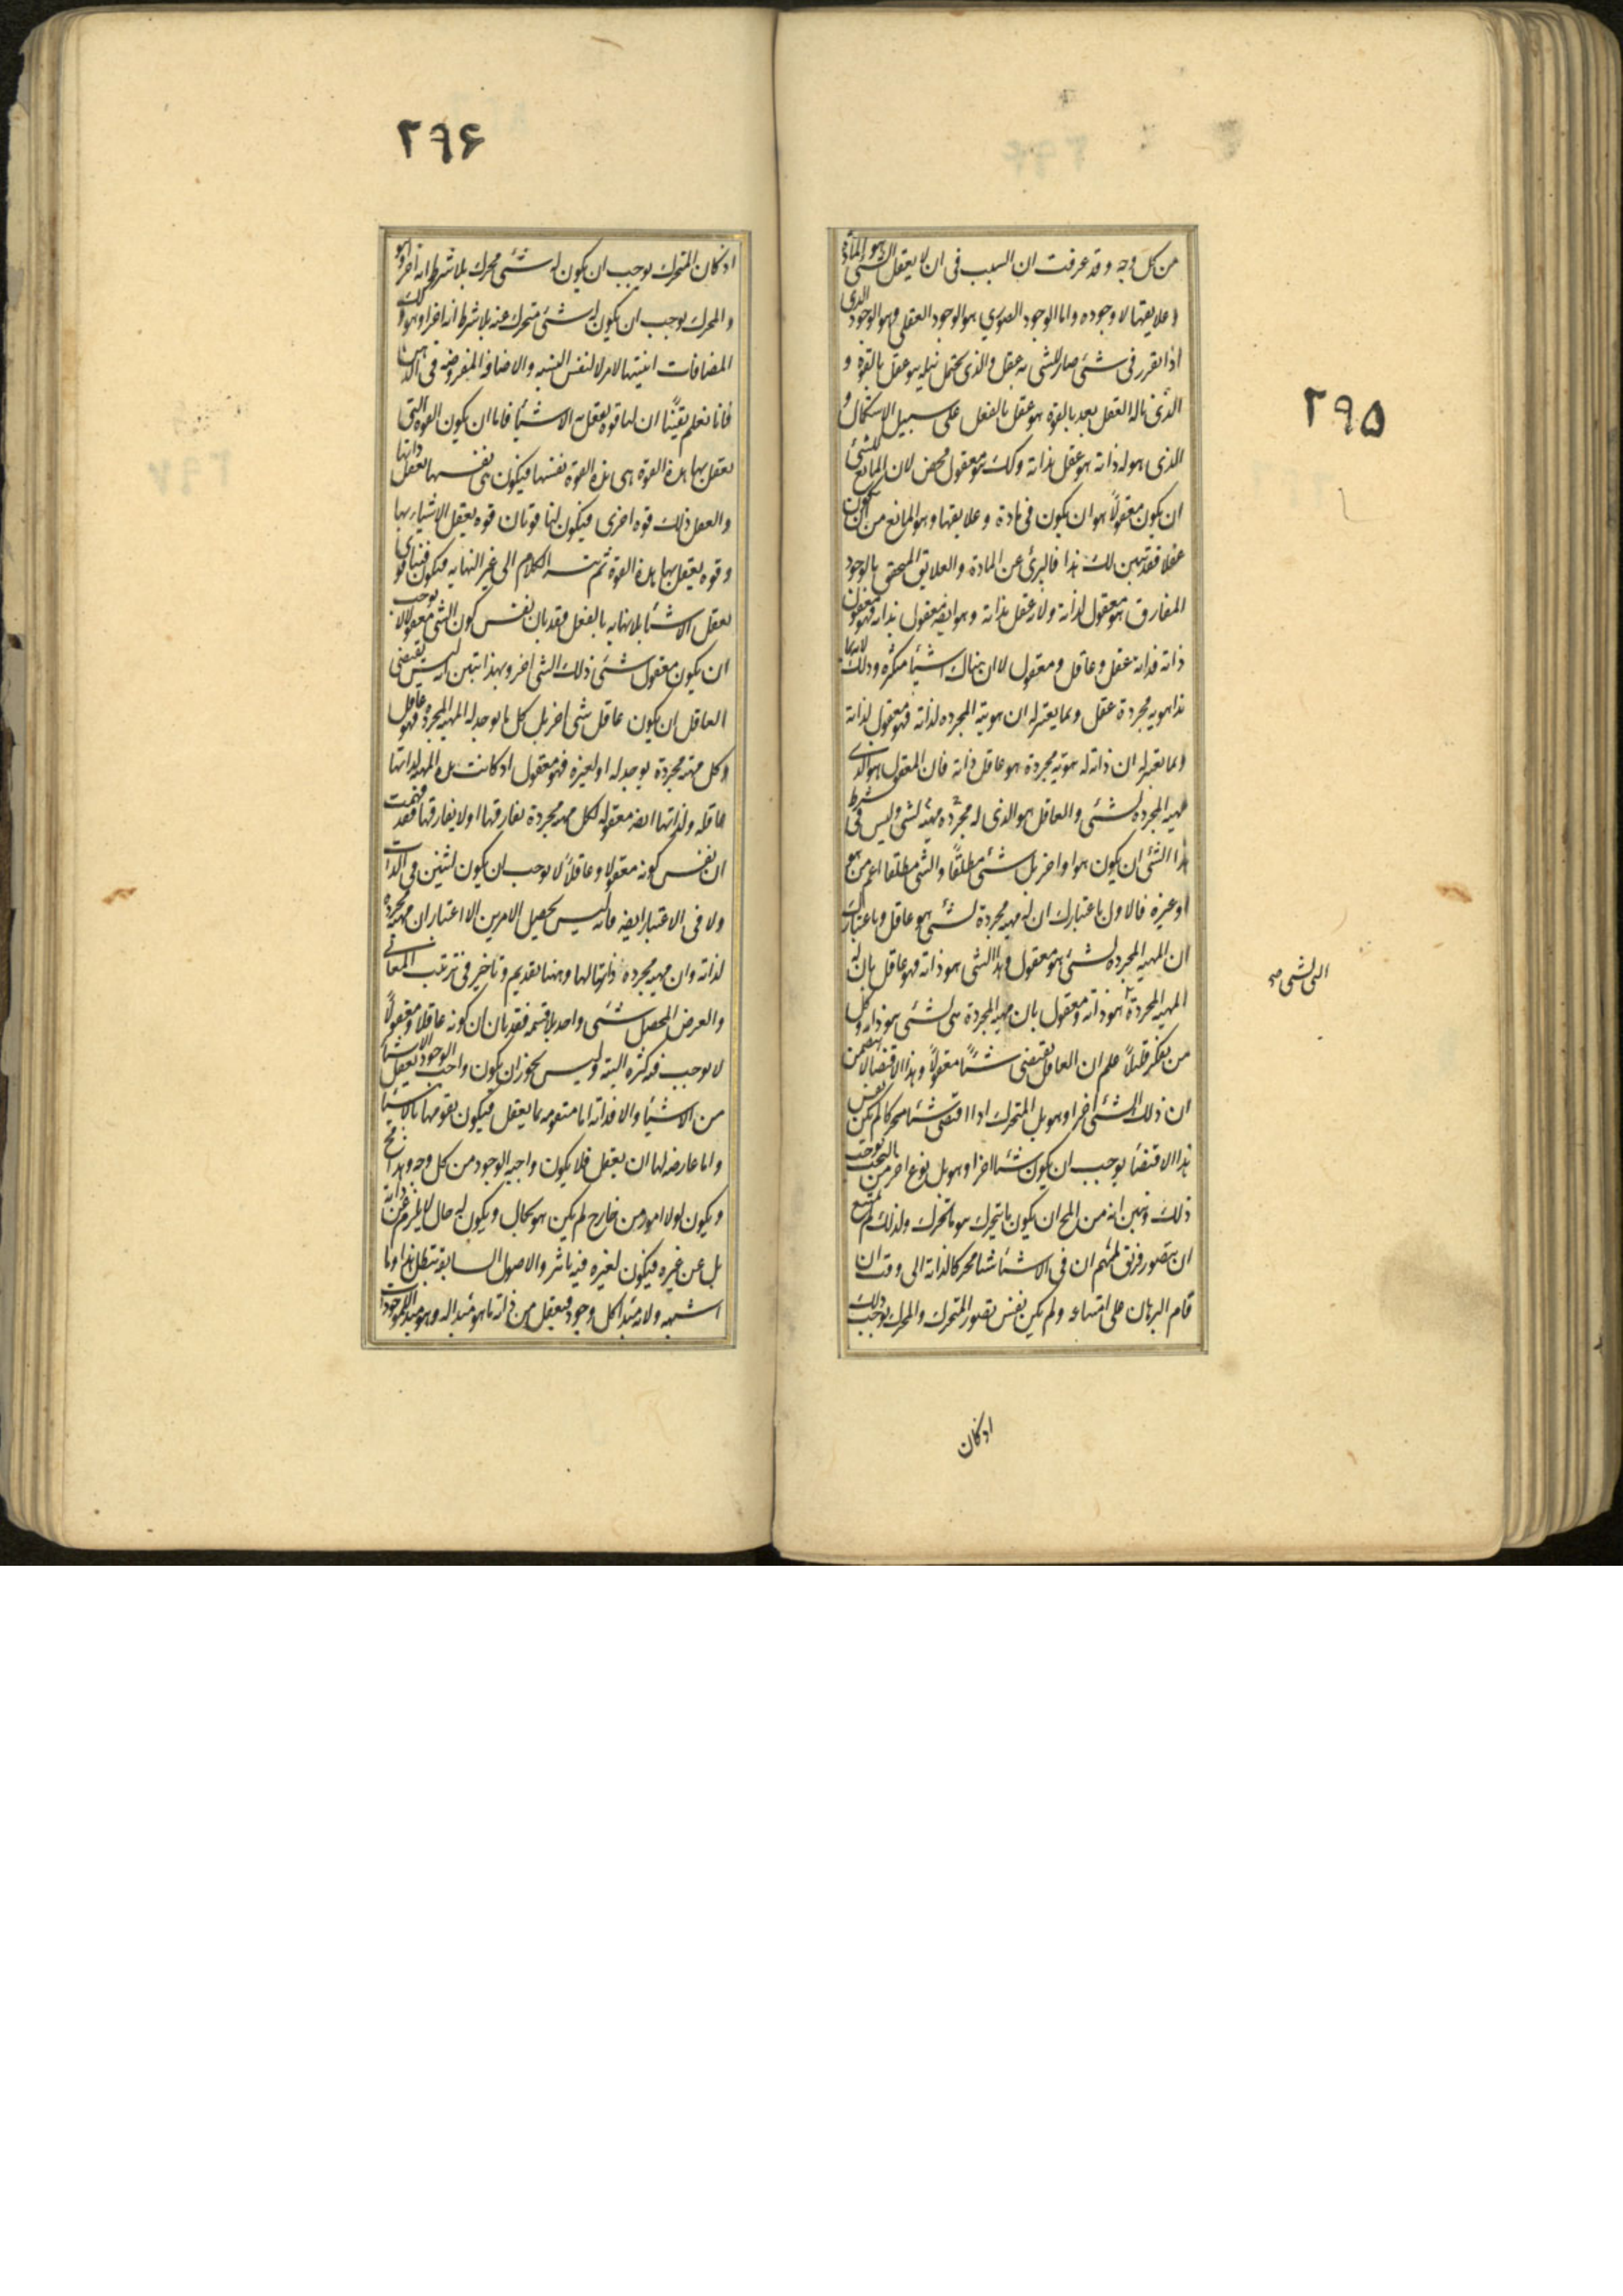 ٢٩۵
من كل وجه وقد عرفت ان السبب فى ان لا يعقل الشئ هو المادة
و علايقها لا وجوده واما الوجود الصورى هو الوجود العقلى وهو الوجود الذى
اذا تقرر فى شئ صار للشئ به عقل والذى يحتمل نيله هو عقل بالقوة و
الذى ناله العقل بعد بالقوة هو عقل بالفعل على سبيل الاستكمال و
الذى هو له ذاته هو عقل بذاته وكك هو معقول محض لان المانع للشئ
ان يكون معقولاً هو ان يكون فى مادة و علايقها وهو المانع من ان يكون
عقلا فقد تبين لك هذا فالبرئ عن المادة والعلايق المتحقق بالوجود
المفارق هو معقول لذاته ولانه عقل بذاته وهو ايضه معقول بذاته فهو معقول
ذاته فذاته عقل وعاقل ومعقول لا ان هناك اشياء متكثره وذلك لانه بما
هذا هويه مجردة عقل وبما يعتبر له ان هويته المجرده لذاته فهو معقول لذاته
وبما يعتبر له ان ذاته له هويه مجردة هو عاقل ذاته فان المعقول هو الذى
مهيه المجرده لشئ والعاقل هو الذى له مجرّده مهيّه لشئ وليس فى شرط
هذا الشئ ان يكون هو او اخر بل شئ مطلقًا والشئ مطلقا اعم من هو
او غيره فالاول باعتبارك ان له مهيه مجردة لشئ هو عاقل وباعتبارك
ان المهيه المجرده لشئ هو معقول وهذا الشئ هو ذاته فهو عاقل بان له
المهيه المجردة هو ذاته ومعقول بان مهيه المجردة هى لشئ هو ذاته وكل
من تفكر قليلاً علم ان العاقل يقتضى شئًا معقولاً وهذا الاقتضا لا يتضمن
ان ذلك الشئ اخر او هو بل المتحرك اذا اقتضى شئا محركا لم يكن نفس
هذا الاقتضا يوجب ان يكون شئا اخرا وهو بل نوع اخر من البحث يوجب
ذلك وتبين انه من المح ان يكون ما يتحرك هو ما يحرك ولذلك لم يمتنع
ان يتصور فريق لهم ان فى الاشياء شئا محركا لذاته الى وقت ان
قام البرهان على امتناعه ولم يكن نفس تصور المتحرك والمحرك يوجب ذلك
اذ كان
الى لشئ صح
٢٩۶
اذ كان المتحرك يوجب ان يكون له شئ محرك بلا شرط انه اخر او هو
والمحرك يوجب ان يكون له شئ متحرك عنه بلا شرط انه اخر او هو وكك
المضافات اثنيتها لامر لا لنفس النسبه والاضافه المفروضه فى الذهن
فانا نعلم يقينًا ان لنا قوه يعقل به الاشياء فاما ان يكون القوه التى
نعقل بها هذه القوة هى هذه القوة نفسها فيكون هى نفسها تعقل ذاتها
والعقل ذلك قوه اخرى فيكون لنا قوتان قوه يعقل الاشياء بها
وقوه يعقل بها هذه القوة ثم يتسـ الكلام الى غير النهايه فيكون فينا قوى
تعقل الاشيا بلا نهايه بالفعل فقد بان نفس كون الشئ معقولا لا يوجب
ان يكون معقول شئ ذلك الشئ اخر وبهذا تبين انه ليس يقتضى
العاقل ان يكون عاقل شئ اخر بل كل ما يوجد له المهيه المجردة فهو عاقل
وكل مهيّه مجردة يوجد له او لغيره فهو معقول اذ كانت هذه المهيه لذاتها
عاقله ولذاتها ايضه معقوله لكل مهيه مجردة تفارقها اولا يفارقها فقد فهمت
ان نفس كونه معقولا وعاقلاً لا يوجب ان يكون اثنين فى الذات
ولا فى الاعتبار ايضه فانه ليس تحصيل الامرين الا اعتبار ان مهيه مجردة
لذاته وان مهيه مجرده ذاتها لها وههنا تقديم وتاخير فى ترتيب المعانى
والغرض المحصل شئ واحد بلا قسمه فقد بان ان كونه عاقلا ومعقولاً
لا يوجب فيه كثره البته وليس يجوز ان يكون واجب الوجود يعقل الاشيا
من الاشياء والا فذاته اما متقومه بما يعقل فيكون تقومها بالاشيا
واما عارضه لها ان يعقل فلا يكون واجبه الوجود من كل وجه وهذا مح
ويكون لولا امور من خارج لم يكن هو بحال ويكون له حال لا يلزم عن ذاته
بل عن غيره فيكون لغيره فيه تاثير والاصول السابقه تبطل هذا وما
اشبهه ولانه مبدا كل وجود فيعقل من ذاته ما هو مبدا له وهو مبدا للموجودات